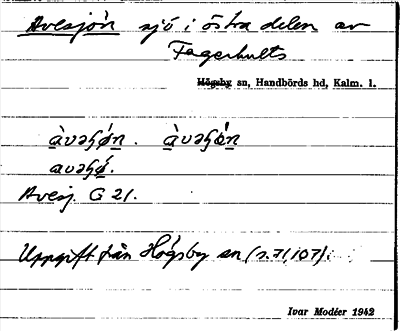 Avesjö́n sjö i östra delen av
Fagerhults
Högsby sn, Handbörds hd, Kalm. l.
Avesj. G 21.
Uppgift från Högsby sn (s. 71, 107).
Ivar Modéer 1942